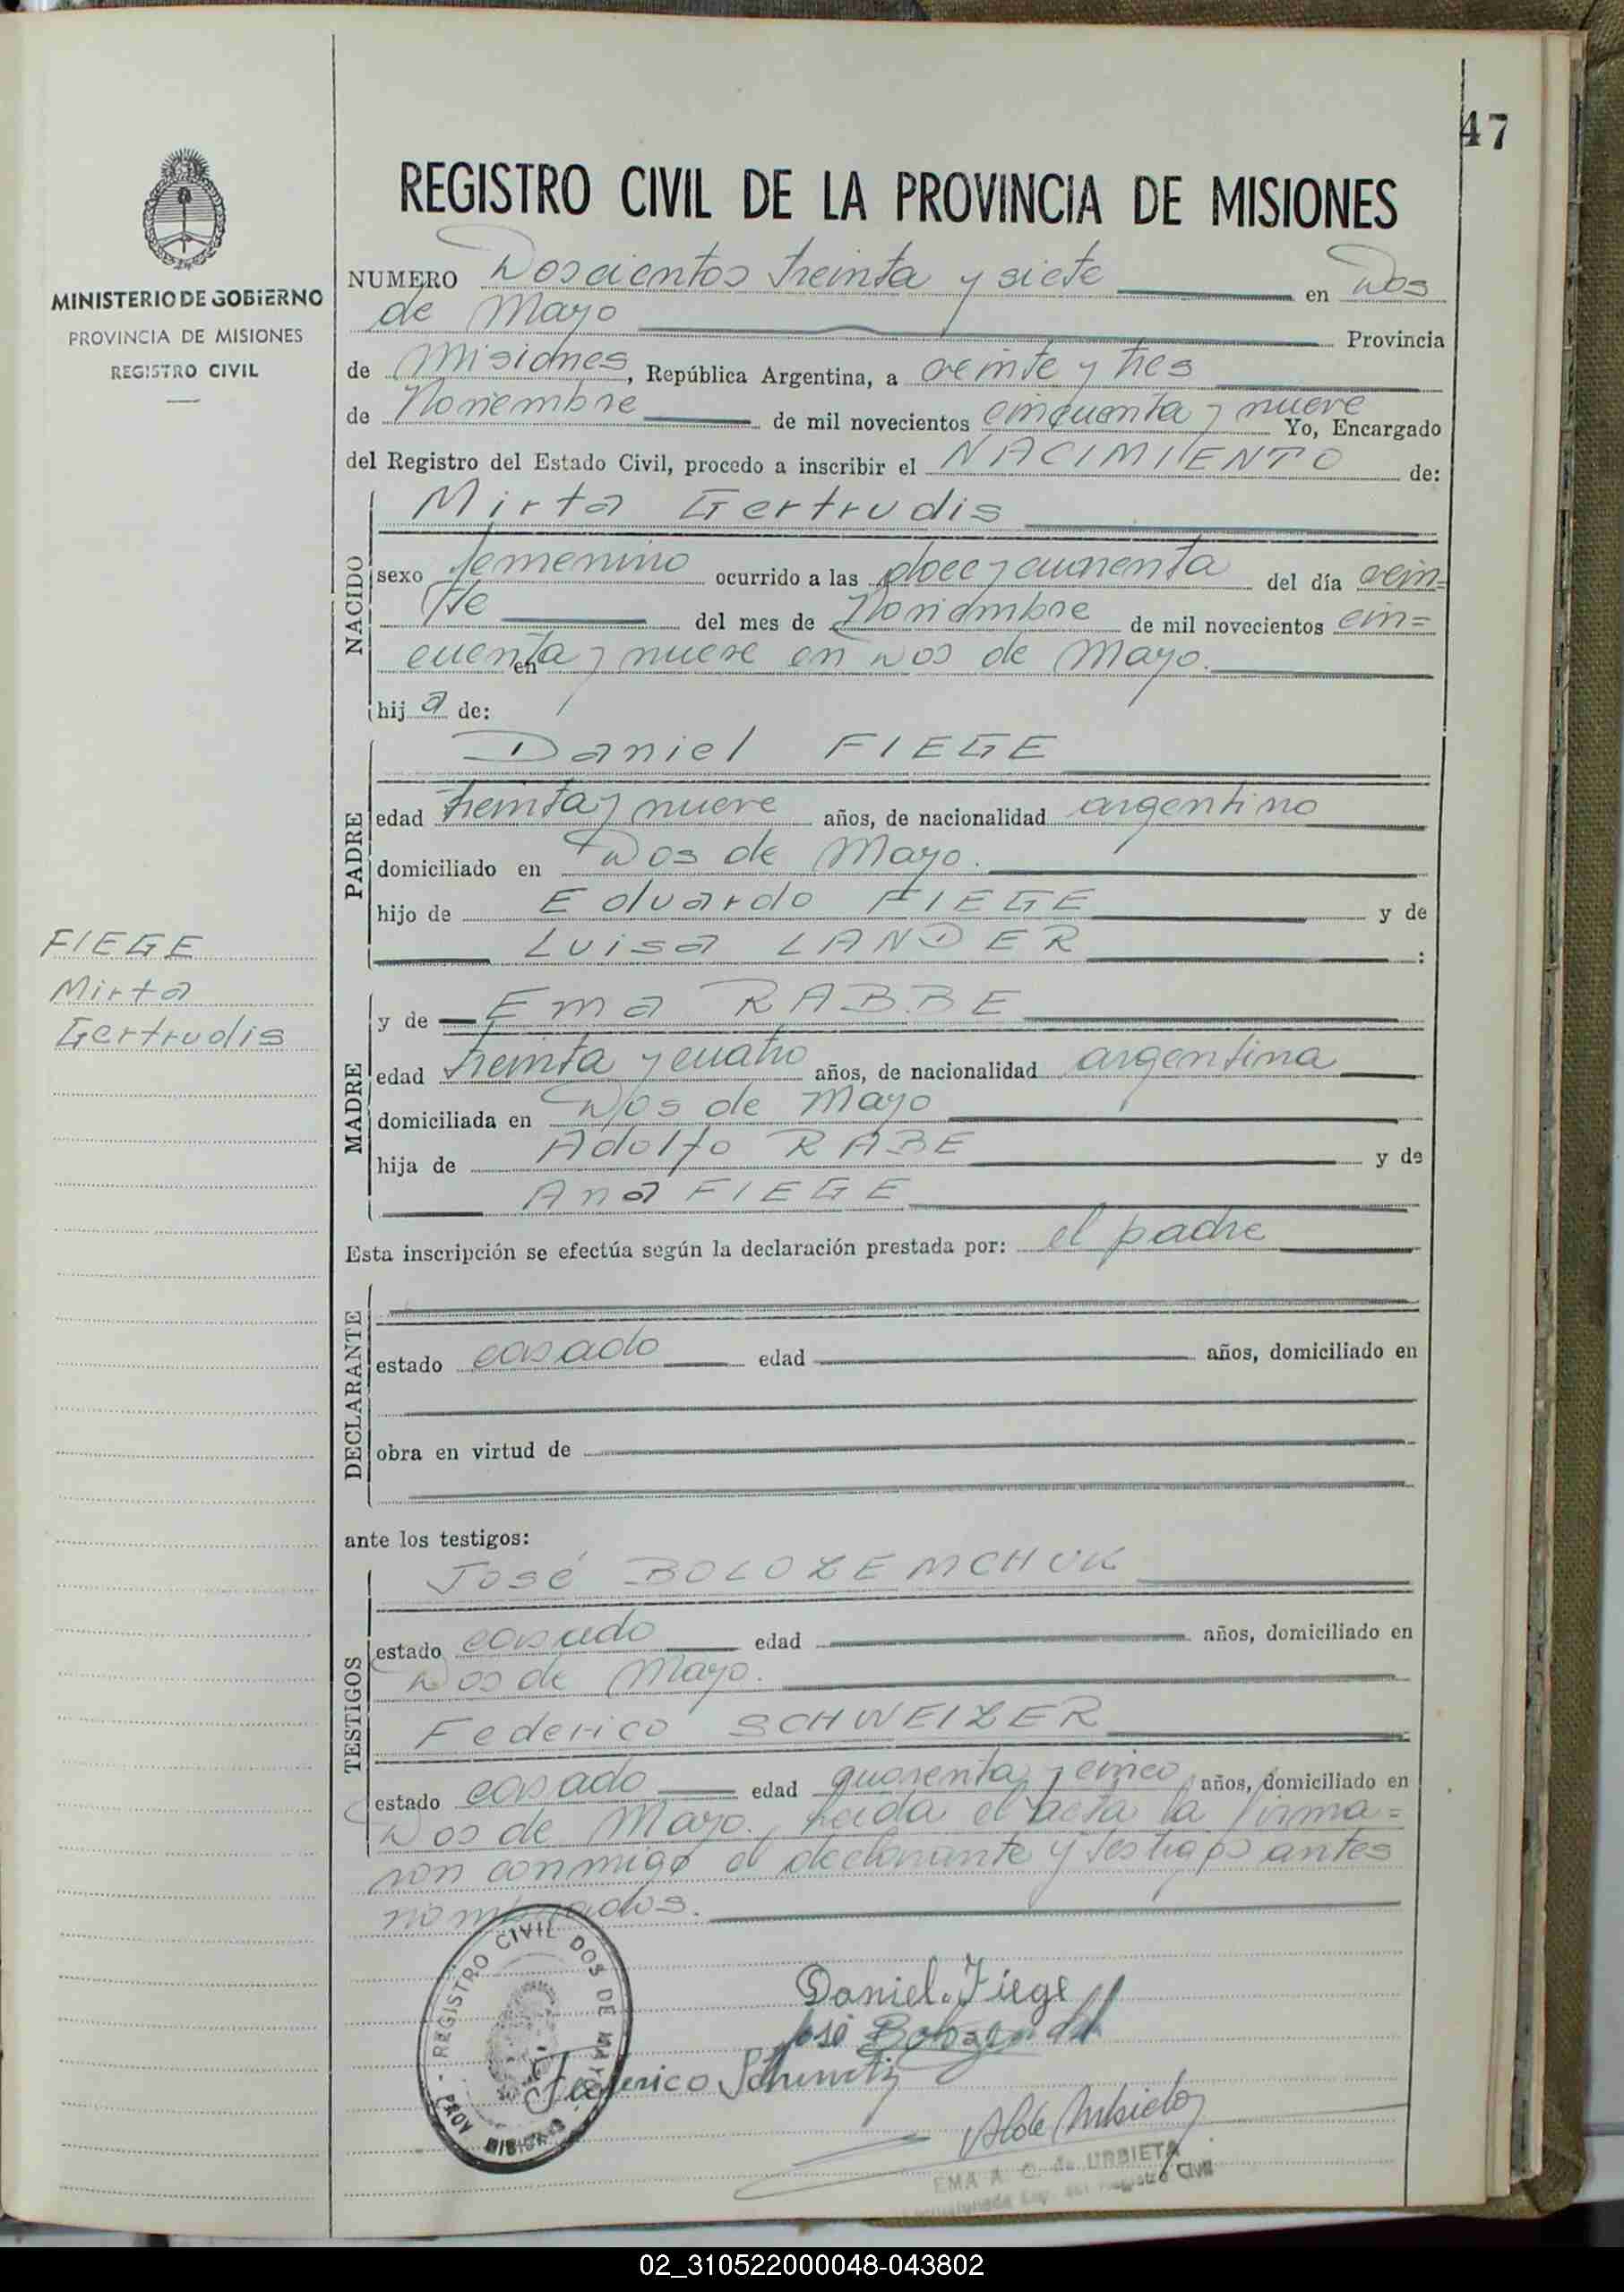 47
REGISTRO CIVIL DE LA PROVINCIA DE MISIONES
MINISTERIO DE GOBIERNO
PROVINCIA DE MISIONES
REGISTRO CIVIL
NUMERO Doscientos treinta y siete en Dos
de Mayo Provincia
de Misiones, República Argentina, a veinte y tres
de Noviembre de mil novecientos cincuenta y nueve Yo, Encargado
del Registro del Estado Civil, procedo a inscribir el NACIMIENTO de:
NACIDO
Mirta Gertrudis
sexo femenino ocurrido a las doce y cuarenta del día vein=
te del mes de Noviembre de mil novecientos cin=
cuenta y nueve en Dos de Mayo.
en
hija de:
PADRE
Daniel FIEGE
edad treinta y nueve años, de nacionalidad argentino
domiciliado en Dos de Mayo.
hijo de Eduardo FIEGE y de
Luisa LANDER :
FIEGE
Mirta
Gertrudis
MADRE
y de Ema RABBE
edad treinta y cuatro años, de nacionalidad argentina
domiciliada en Dos de Mayo
hija de Adolfo RABE y de
Ana FIEGE
Esta inscripción se efectúa según la declaración prestada por: el padre
DECLARANTE
estado casado edad años, domiciliado en
obra en virtud de
ante los testigos:
TESTIGOS
José BOLOZEMCHUK
estado casado edad años, domiciliado en
Dos de Mayo.
Federico SCHWEIZER
estado casado edad quarenta y cinco años, domiciliado en
Dos de Mayo. Leida el acta la firma=
ron conmigo el declarante y testigos antes
nombrados.
REGISTRO CIVIL DOS DE MAYO - PROV. MISIONES
Daniel Fiege
José
Federico
EMA A. C. de URBIETA
Registro Civil
02_310522000048-043802